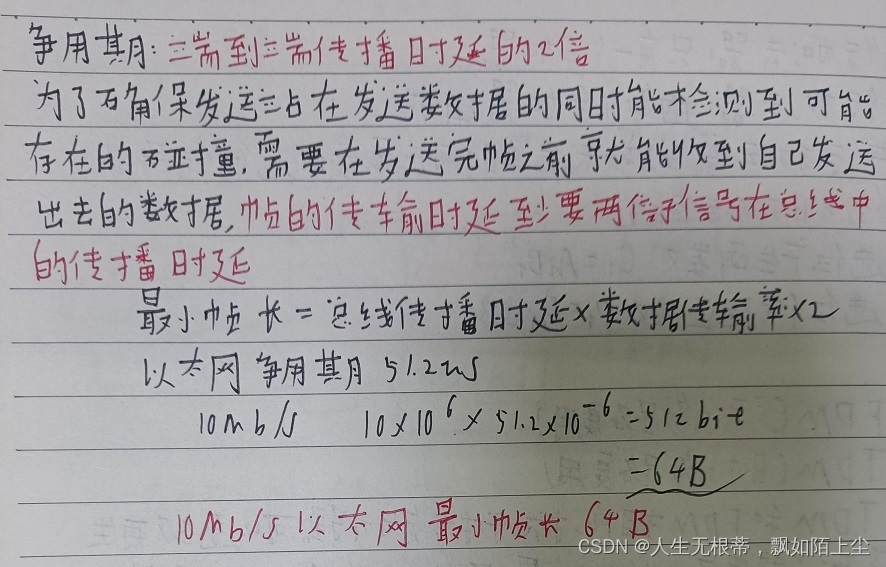 争用期:端到端传播时延的2倍
为了确保发送站在发送数据的同时能检测到可能
存在的碰撞,需要在发送完帧之前就能收到自己发送
出去的数据,帧的传输时延至少要两倍于信号在总线中
的传播时延
最小帧长=总线传播时延×数据传输率×2
以太网争用期 51.2us
10Mb/s 10×10⁶×51.2×10⁻⁶=512bit
=64B
10Mb/s以太网最小帧长 64B
CSDN @人生无根蒂,飘如陌上尘